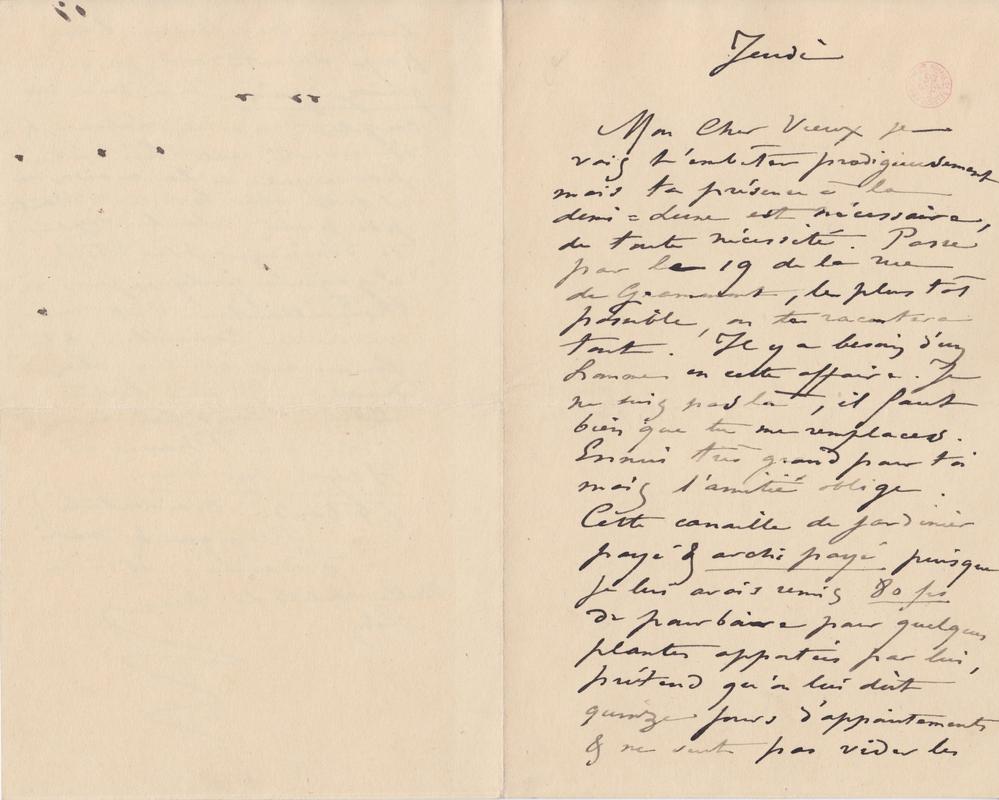 Jeudi
Mon Cher Vieux je
vais t'embêter prodigieusement
mais ta présence à la
demi=Lune est nécessaire,
de toute nécessité. Passe
par le 19 de la rue
de Gramont, le plus tôt
possible, on te racontera
tout. Il y a besoin d'un
homme en cette affaire. Je
ne suis pas là, il faut
bien que tu me remplaces.
Ennui très grand pour toi
mais l'amitié oblige.
Cette canaille de jardinier
payé & archi payé puisque
je lui avais remis 80 frs
de pourboire pour quelques
plantes apportées par lui,
prétend qu'on lui doit
quinze jours d'appointements
& ne veut pas vider les